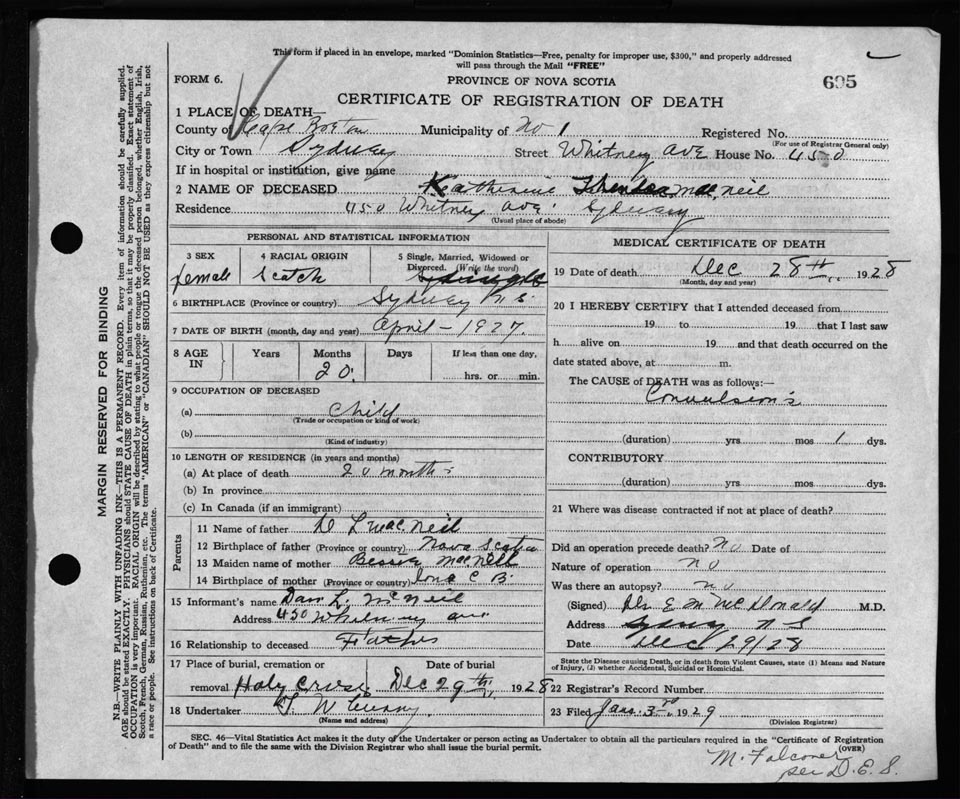 This form if placed in an envelope, marked "Dominion Statistics—Free, penalty for improper use, $300," and properly addressed
will pass through the Mail "FREE"
FORM 6.
PROVINCE OF NOVA SCOTIA
695
CERTIFICATE OF REGISTRATION OF DEATH
1 PLACE OF DEATH—
County of Cape Breton Municipality of No 1 Registered No.
(For use of Registrar General only)
City or Town Sydney Street Whitney Ave House No. 450
If in hospital or institution, give name
2 NAME OF DECEASED Katherine MacNeil
Residence 450 Whitney Ave. Sydney
(Usual place of abode)
PERSONAL AND STATISTICAL INFORMATION
3 SEX 4 RACIAL ORIGIN 5 Single, Married, Widowed or
Divorced. (Write the word)
female Scotch Single
6 BIRTHPLACE (Province or country) Sydney N.S.
7 DATE OF BIRTH (month, day and year) April - 1927.
8 AGE IN Years Months Days If less than one day,
20. hrs. or min.
9 OCCUPATION OF DECEASED
(a) Child
(Trade or occupation or kind of work)
(b)
(Kind of industry)
10 LENGTH OF RESIDENCE (in years and months)
(a) At place of death 20 months
(b) In province
(c) In Canada (if an immigrant)
Parents
11 Name of father D L MacNeil
12 Birthplace of father (Province or country) Nova Scotia
13 Maiden name of mother Bessie MacNeil
14 Birthplace of mother (Province or country) Iona C B.
15 Informant's name Dan L. McNeil
Address 450 Whitney ave
16 Relationship to deceased Father
17 Place of burial, cremation or Date of burial
removal Holy Cross Dec 29th, 1928
18 Undertaker T. W. Curry
(Name and address)
MEDICAL CERTIFICATE OF DEATH
19 Date of death Dec 28th, 1928
(Month, day and year)
20 I HEREBY CERTIFY that I attended deceased from
19 to 19 that I last saw
h alive on 19 and that death occurred on the
date stated above, at m.
The CAUSE of DEATH was as follows:—
Convulsion's
(duration) yrs mos 1 dys.
CONTRIBUTORY
(duration) yrs mos dys.
21 Where was disease contracted if not at place of death?
Did an operation precede death? No Date of
Nature of operation No
Was there an autopsy? No
(Signed) Dr E M McDonald M.D.
Address Sydney N S
Date Dec 29/28
State the Disease causing Death, or in death from Violent Causes, state (1) Means and Nature
of Injury, (2) whether Accidental, Suicidal or Homicidal.
22 Registrar's Record Number
23 Filed Jan. 3rd 1929
(Division Registrar)
SEC. 46—Vital Statistics Act makes it the duty of the Undertaker or person acting as Undertaker to obtain all the particulars required in the "Certificate of Registration
of Death" and to file the same with the Division Registrar who shall issue the burial permit.
(OVER)
M. Falconer
per D.E.S.
MARGIN RESERVED FOR BINDING
N.B.—WRITE PLAINLY WITH UNFADING INK—THIS IS A PERMANENT RECORD. Every item of information should be carefully supplied.
AGE should be stated EXACTLY. PHYSICIANS should STATE CAUSE OF DEATH in plain terms, so that it may be properly classified. Exact statement of
OCCUPATION is very important. RACIAL ORIGIN will be described by stating to what people or tongue the deceased person belonged, whether English, Irish,
Scotch, French, German, Russian, Ruthenian, etc. The terms "AMERICAN" or "CANADIAN" SHOULD NOT BE USED as they express citizenship but not
a race or people. See instructions on back of Certificate.